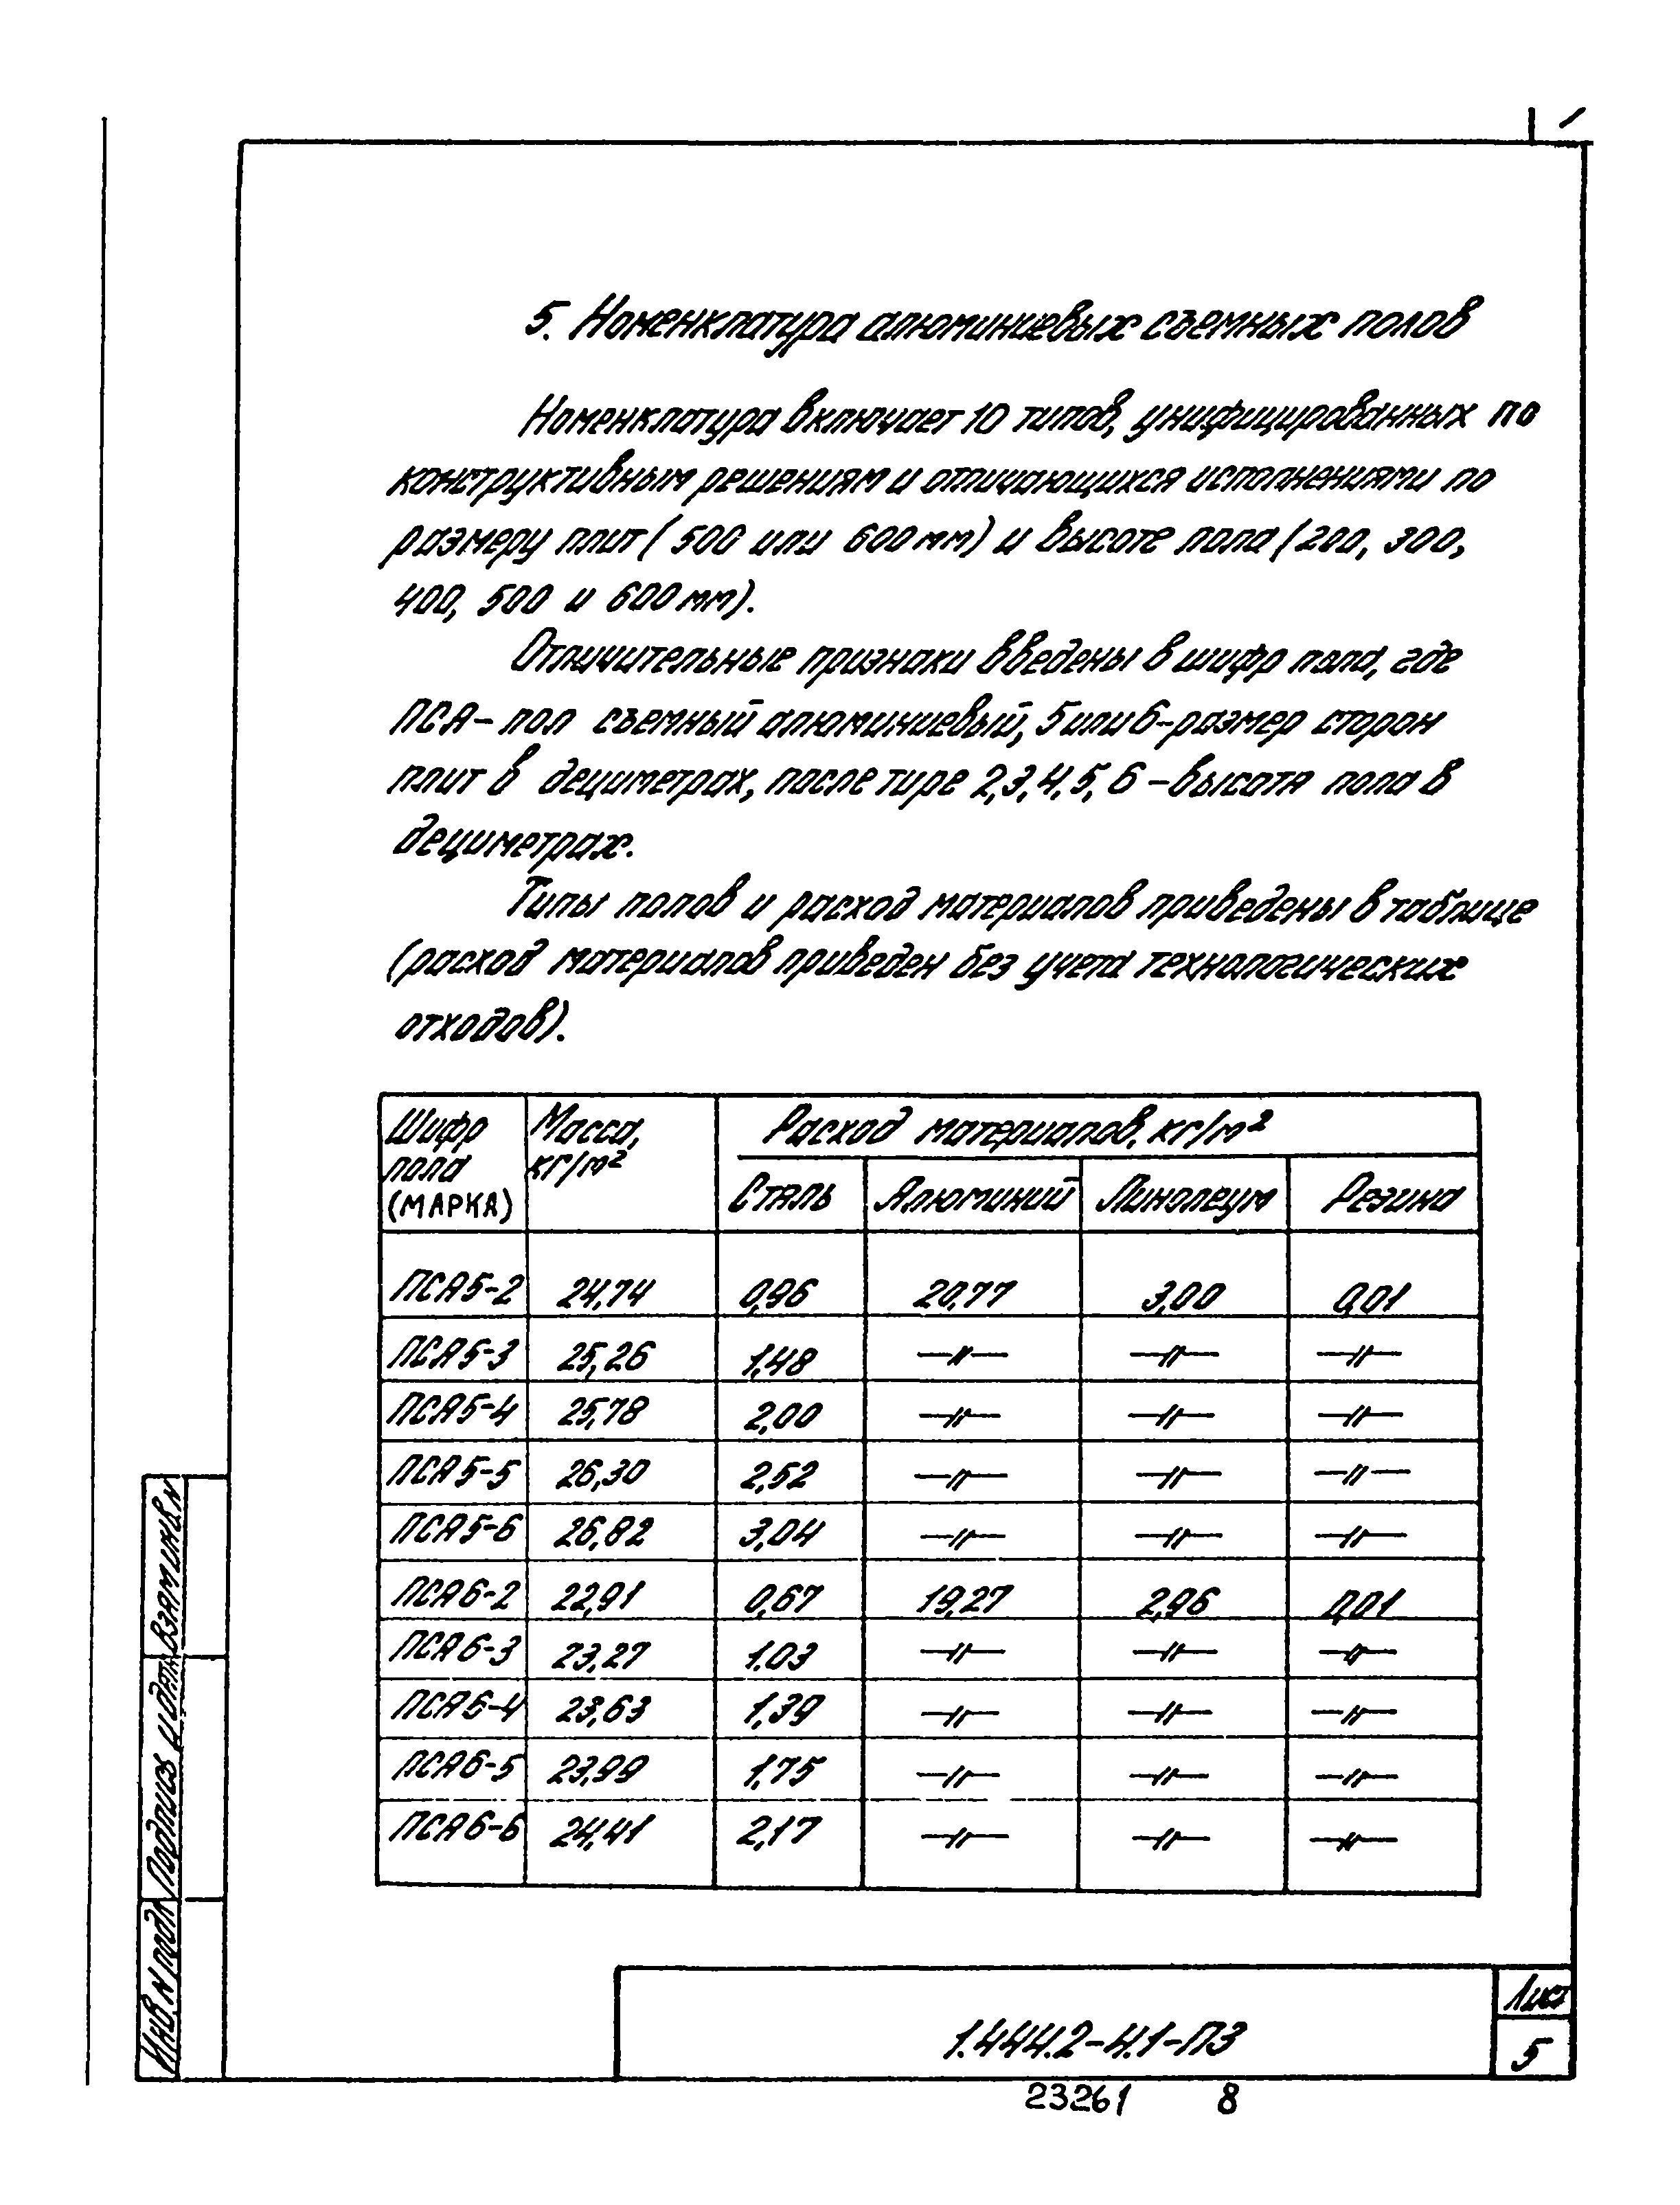 5. Номенклатура алюминиевых съемных полов
Номенклатура включает 10 типов, унифицированных по
конструктивным решениям и отличающихся исполнениями по
размеру плит (500 или 600 мм) и высоте пола (200, 300,
400, 500 и 600 мм).
Отличительные признаки введены в шифр пола, где
ПСА – пол съемный алюминиевый, 5 или 6 – размер сторон
плит в дециметрах, после тире 2,3,4,5,6 – высота пола в
дециметрах.
Типы полов и расход материалов приведены в таблице
(расход материалов приведен без учета технологических
отходов).
Шифр пола (МАРКА) Масса, кг/м² Расход материалов, кг/м²
Сталь Алюминий Линолеум Резина
ПСА5-2 24,74 0,96 20,77 3,00 0,01
ПСА5-3 25,26 1,48 —//— —//— —//—
ПСА5-4 25,78 2,00 —//— —//— —//—
ПСА5-5 26,30 2,52 —//— —//— —//—
ПСА5-6 26,82 3,04 —//— —//— —//—
ПСА6-2 22,91 0,67 19,27 2,96 0,01
ПСА6-3 23,27 1.03 —//— —//— —//—
ПСА6-4 23,63 1,39 —//— —//— —//—
ПСА6-5 23,99 1,75 —//— —//— —//—
ПСА6-6 24,41 2,17 —//— —//— —//—
Взам инв. N
Подпись и дата
Инв. N подл
1.444.2-4.1-ПЗ
Лист
5
23261 8